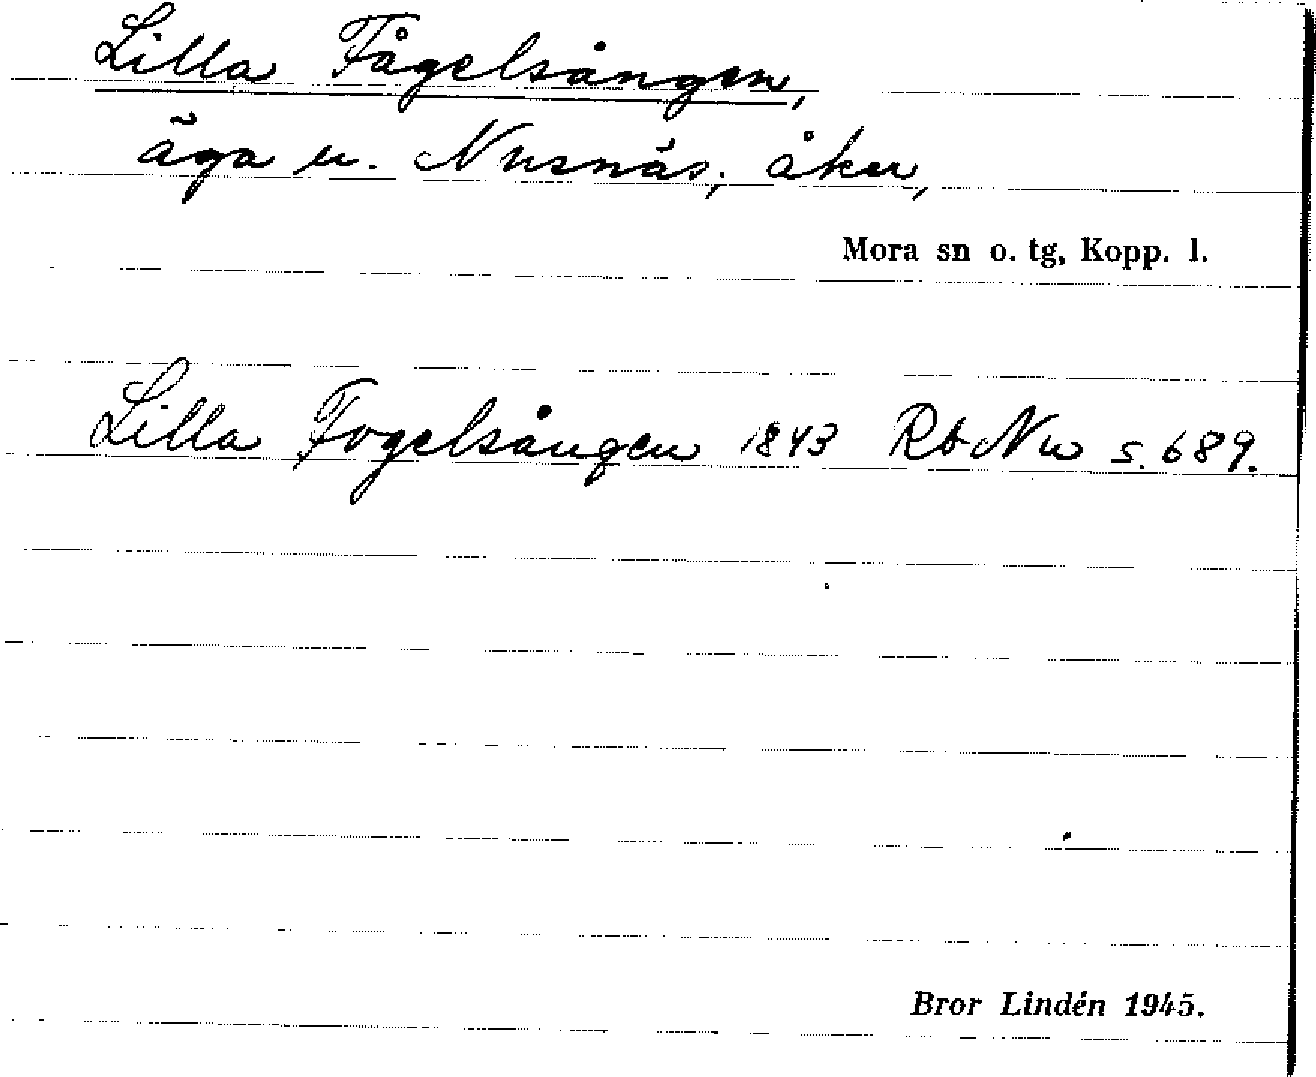 Lilla Fågelsången,
äga u. Nusnäs; åker,
Mora sn o. tg, Kopp. l.
Lilla Fogelsången 1843 Rb Nu s. 689.
Bror Lindén 1945.